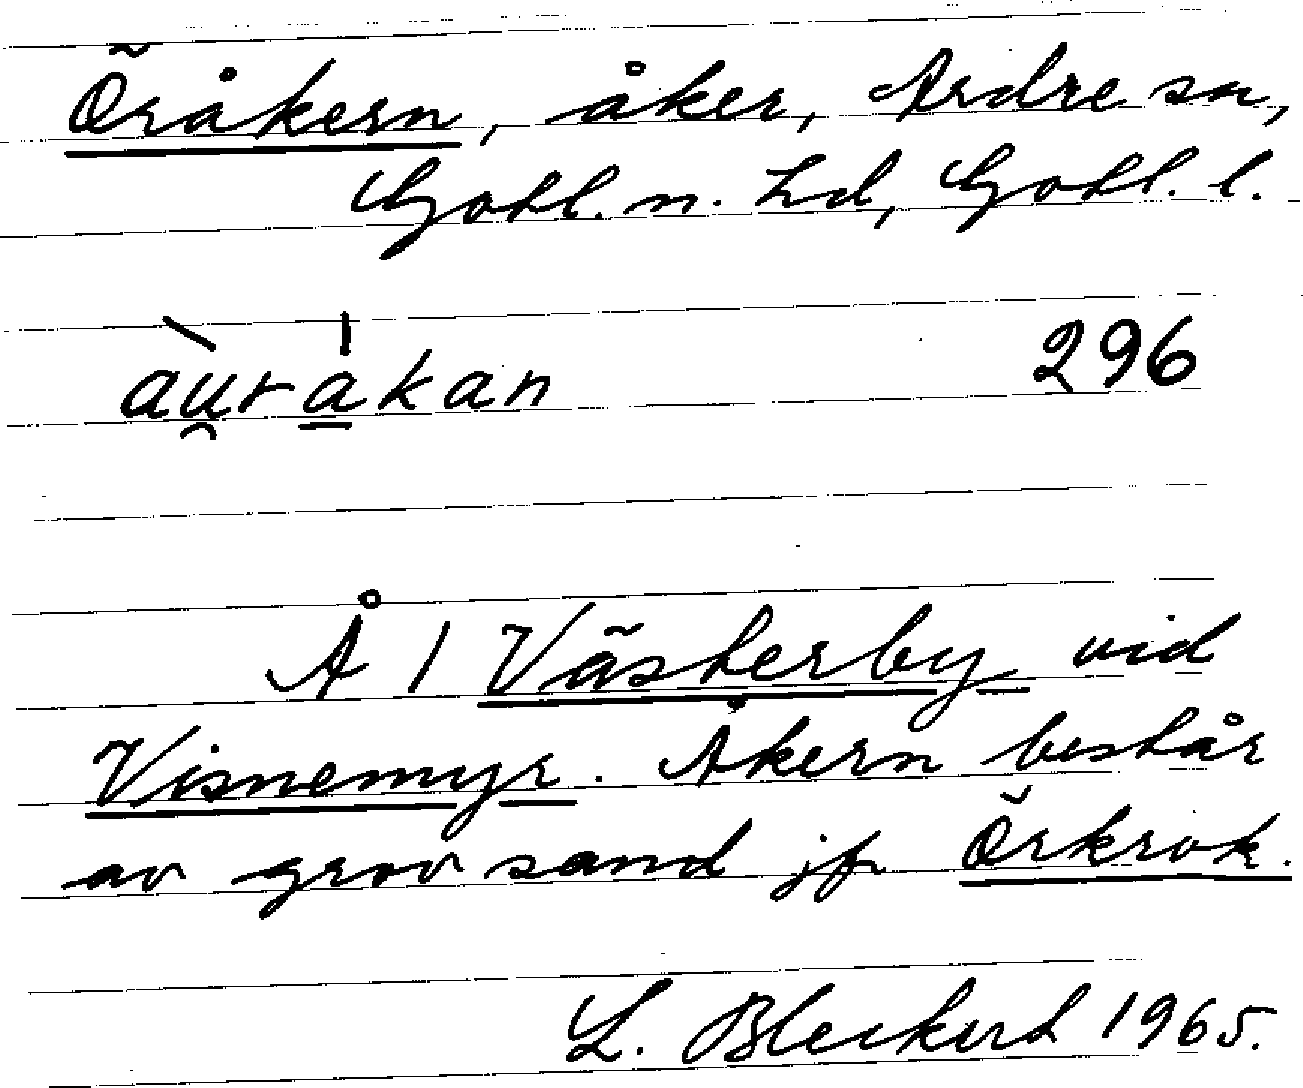 Öråkern, åker, Ardre sn,
Gotl. n. hd, Gotl. l.
au̯råkan 296
Å 1 Västerby vid
Visnemyr. Åkern består
av grov sand jfr Örkrok.
L. Bleckert 1965.